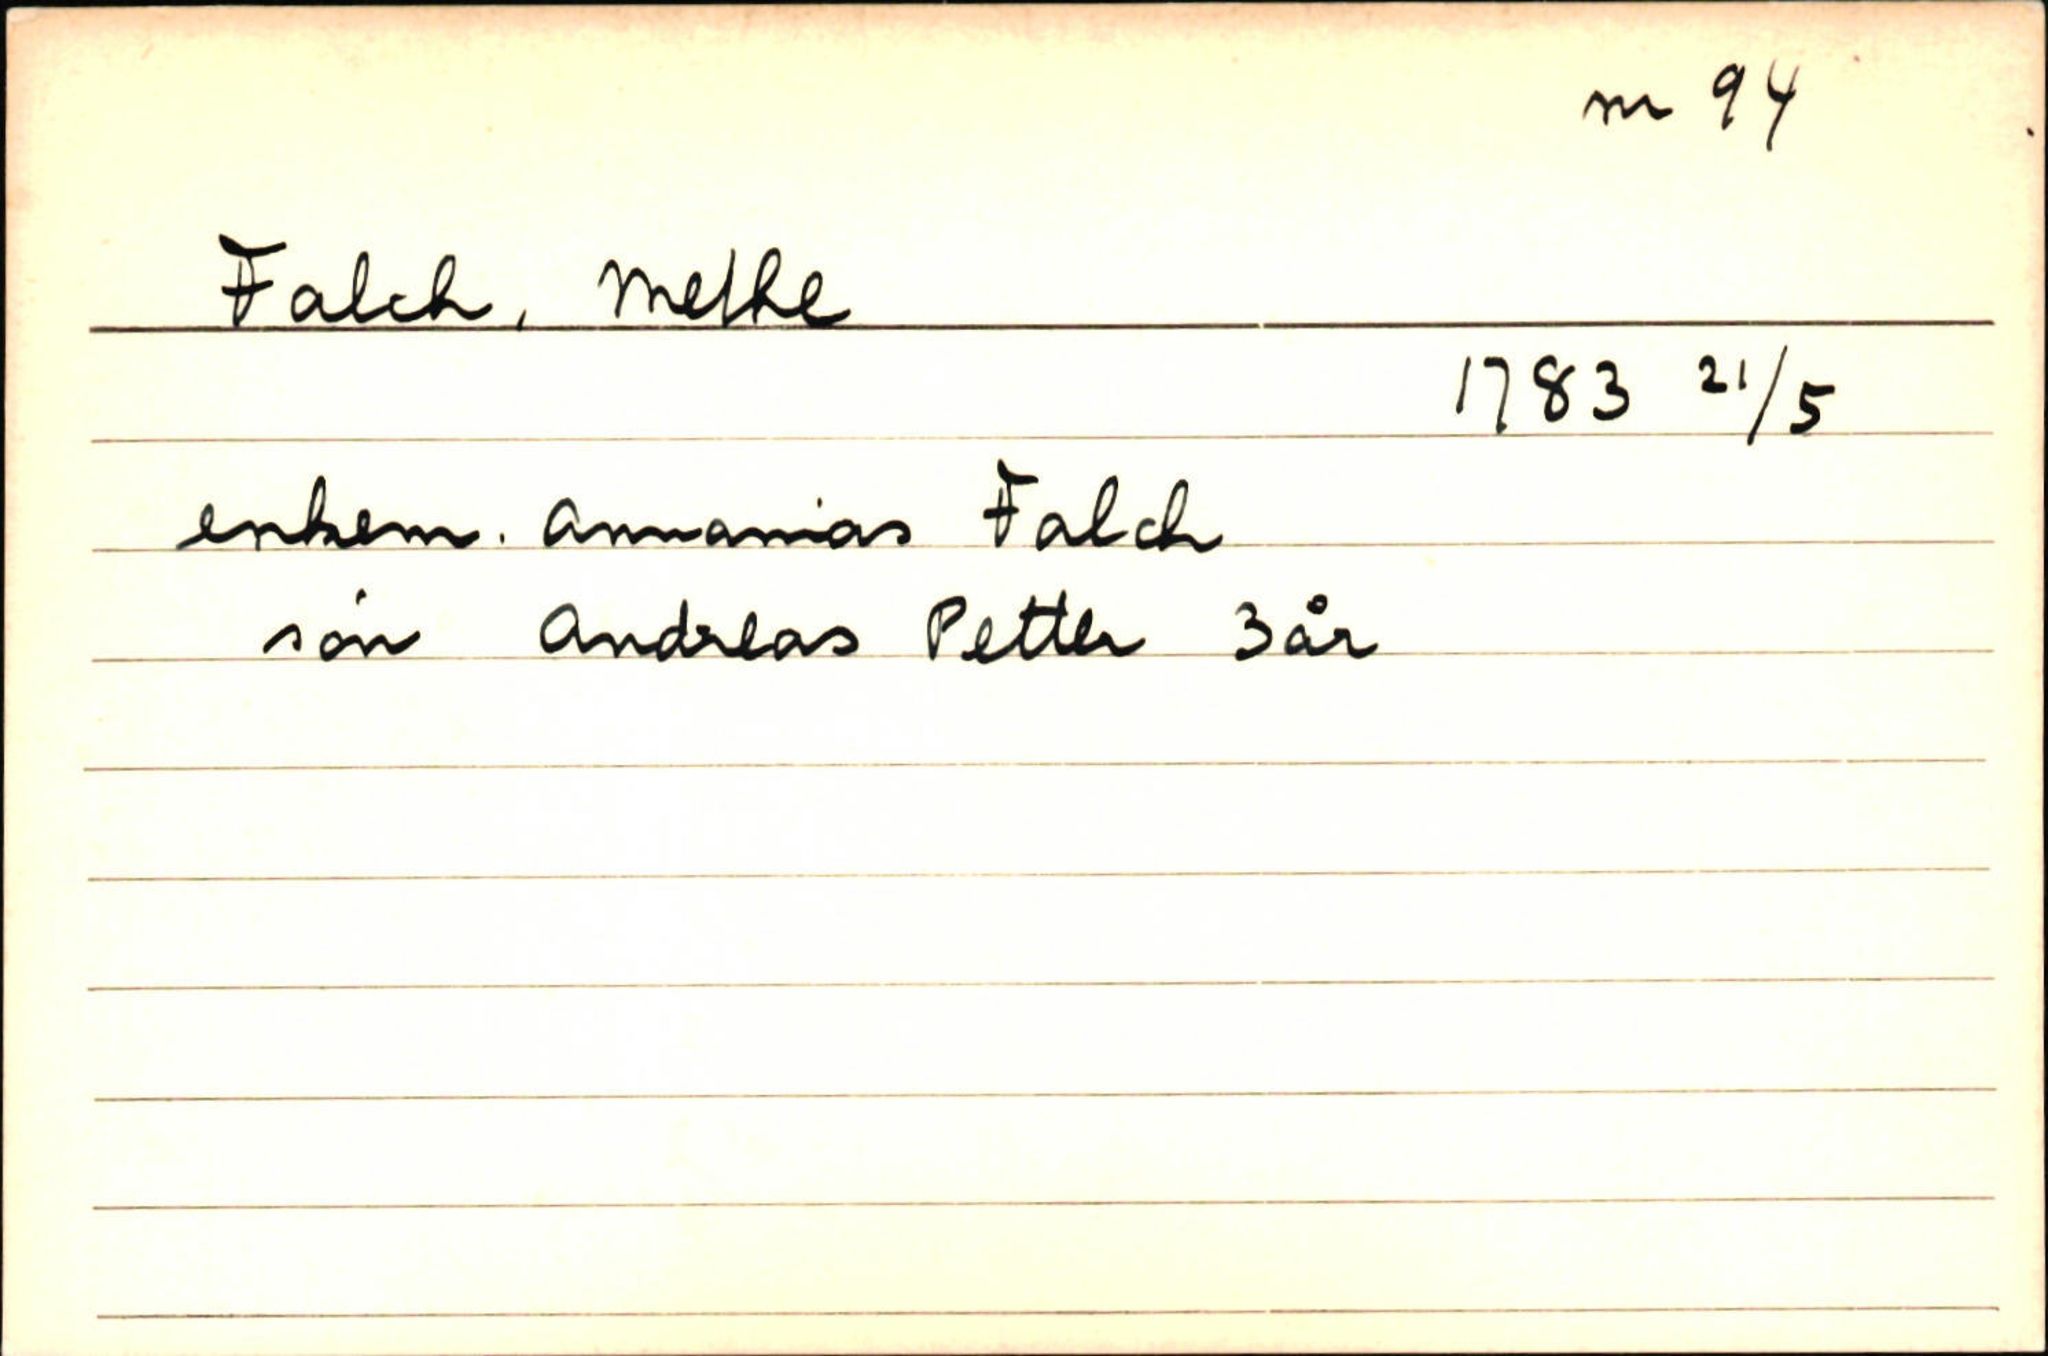 m 94
Falch, Methe
1783 21/5
enkem. Annanias Falch
søn Andreas Petter 3 år